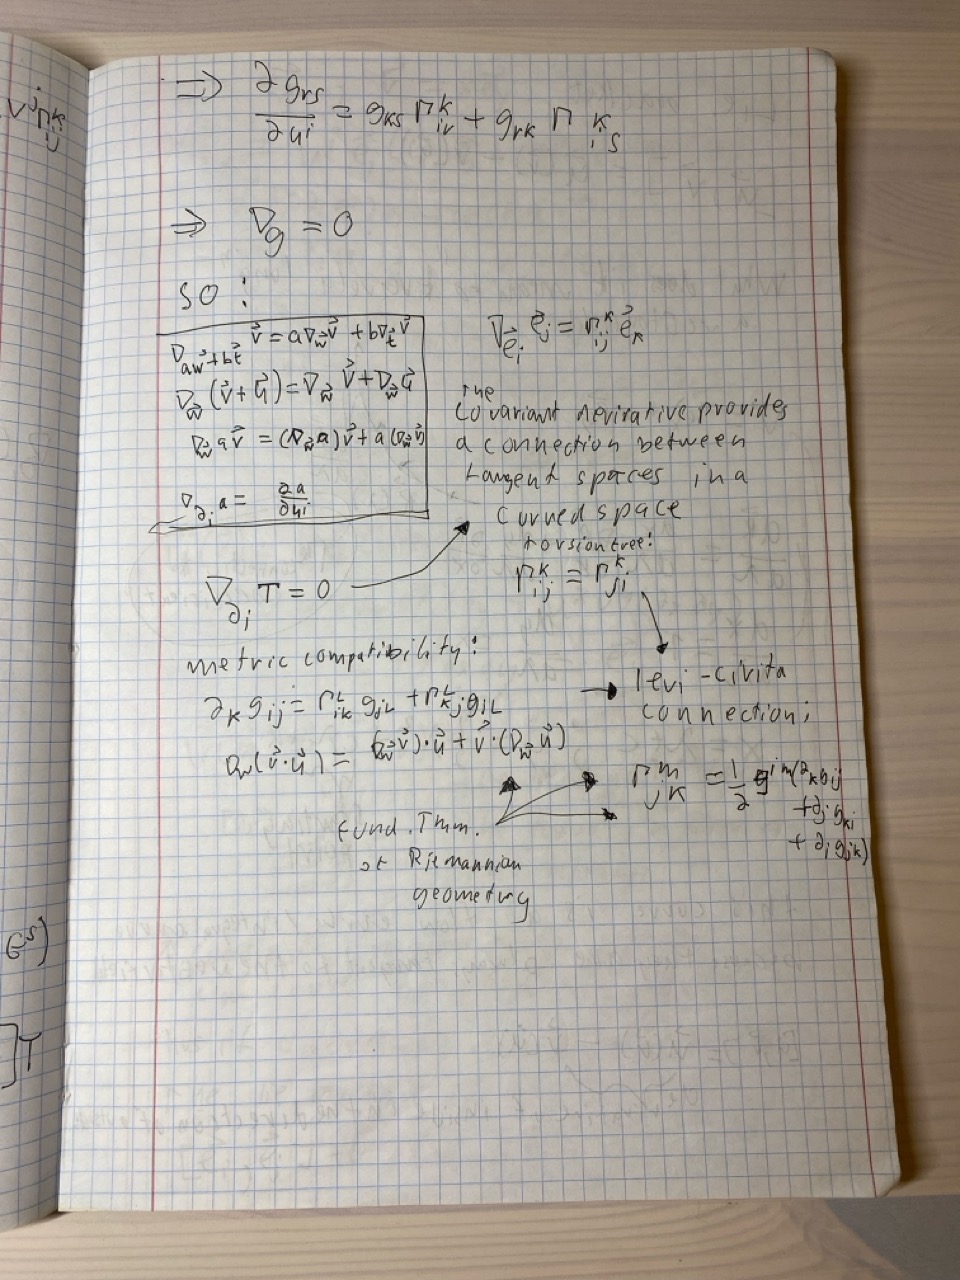 ⇒ ∂g_rs/∂u^i = g_ks Γ^k_ir + g_rk Γ^k_is
⇒ ∇g = 0
so:
∇_{aw⃗+bt⃗} v⃗ = a∇_w⃗ v⃗ + b∇_t⃗ v⃗
∇_w⃗ (v⃗ + u⃗) = ∇_w⃗ v⃗ + ∇_w⃗ u⃗
∇_w⃗ a v⃗ = (∇_w⃗ a) v⃗ + a (∇_w⃗ v⃗)
∇_∂i a = ∂a/∂u^i
∇_e⃗i e⃗_j = Γ^k_ij e⃗_k
the
covariant nevirative provides
a connection between
tangent spaces in a
curved space
∇_∂i T = 0
torsion free:
Γ^k_ij = Γ^k_ji
metric compatibility:
∂_k g_ij = Γ^L_ik g_jL + Γ^L_kj g_iL
∇_w⃗ (v⃗·u⃗) = (∇_w⃗ v⃗)·u⃗ + v⃗·(∇_w⃗ u⃗)
→ levi-civita
connection;
Γ^m_jk = 1/2 g^im (∂_k g_ij
+ ∂_j g_ki
+ ∂_i g_jk)
Fund. Tmm.
of Riemannian
geometry
v^j Γ^k_ij
]T